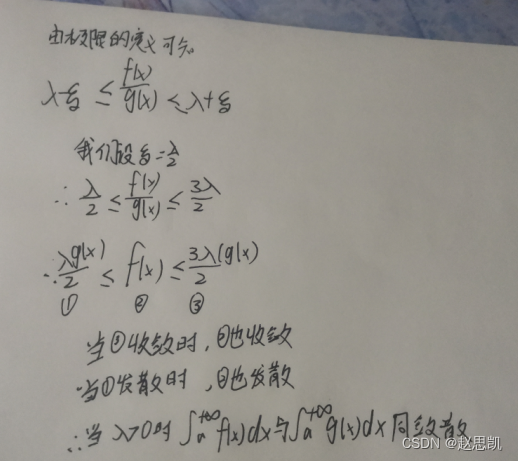 由极限的定义可知
λ-ξ ≤ f(x)/g(x) ≤ λ+ξ
我们设ξ=λ/2
∴ λ/2 ≤ f(x)/g(x) ≤ 3λ/2
∴ λg(x)/2 ≤ f(x) ≤ 3λ(g(x)/2
① ② ③
当②收敛时,②也收敛
当①发散时,②也发散
∴当 λ>0时 ∫a+∞ f(x)dx与∫a+∞ g(x)dx同敛散
CSDN @赵思凯